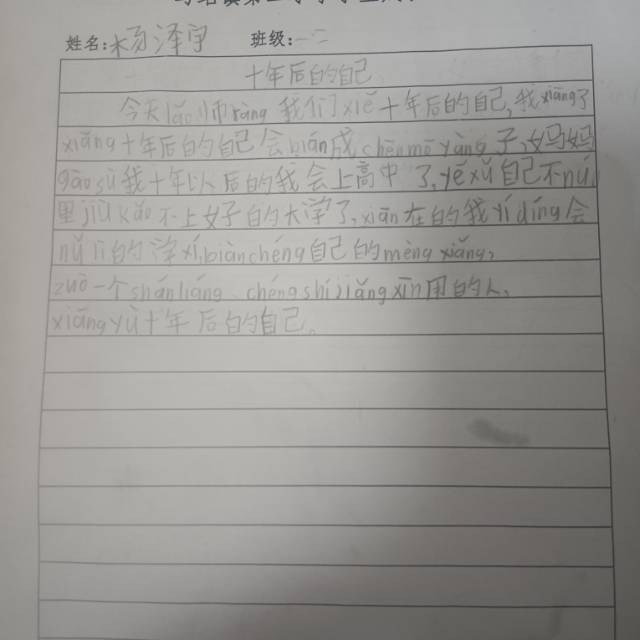 姓名:杨泽宇 班级:一二
十年后的自己
今天lǎo师ràng我们xiě十年后的自己,我xiǎng了
xiǎng十年后的自己会biàn成shénmeyàng子,妈妈
gào sù我十年以后的我会上高中了,yě xǔ自己不nǔ
里jiù kǎo不上好的大学了,xiàn在的我yí dìng会
nǔ lì的学xí biànchéng自己的mèng xiǎng,
zuò一个shànliáng chéngshí jiǎng xìn用的人,
xiāng yù十年后的自己。